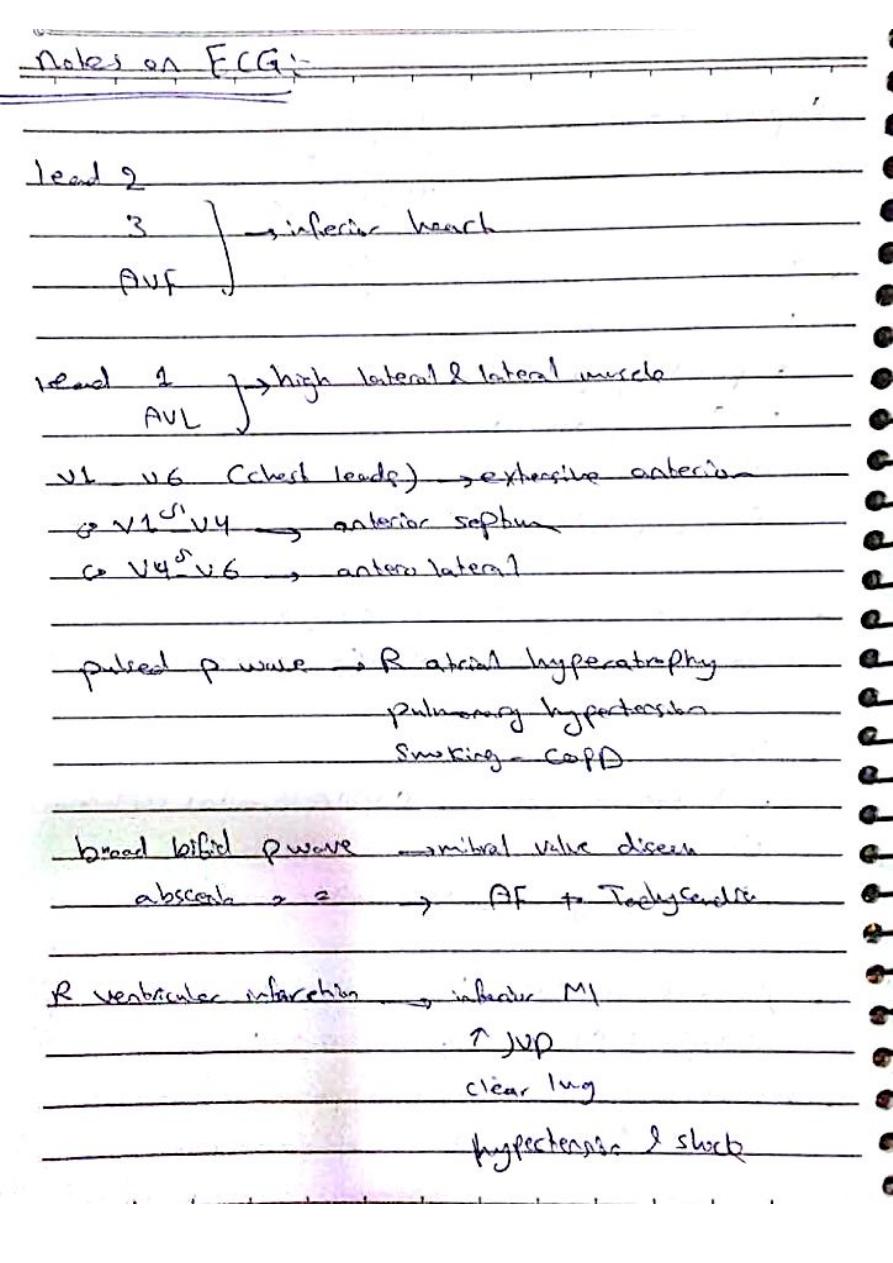 Notes on ECG:-
lead 2
3
AVF } → inferior heart
lead 1
AVL } → high lateral & lateral muscle
V1 _ V6 (chest leads) → extensive anterior
V1 _ V4 → anterior septum
V4 _ V6 → antero lateral
pulsed p wave → R atrial hyperatrophy
pulmonary hypertension
Smoking - COPD
broad bifid p wave → mitral valve
→ AF + Tachycardia
R ventricular infarction → inferior MI
↑ JVP
clear lug
& shock